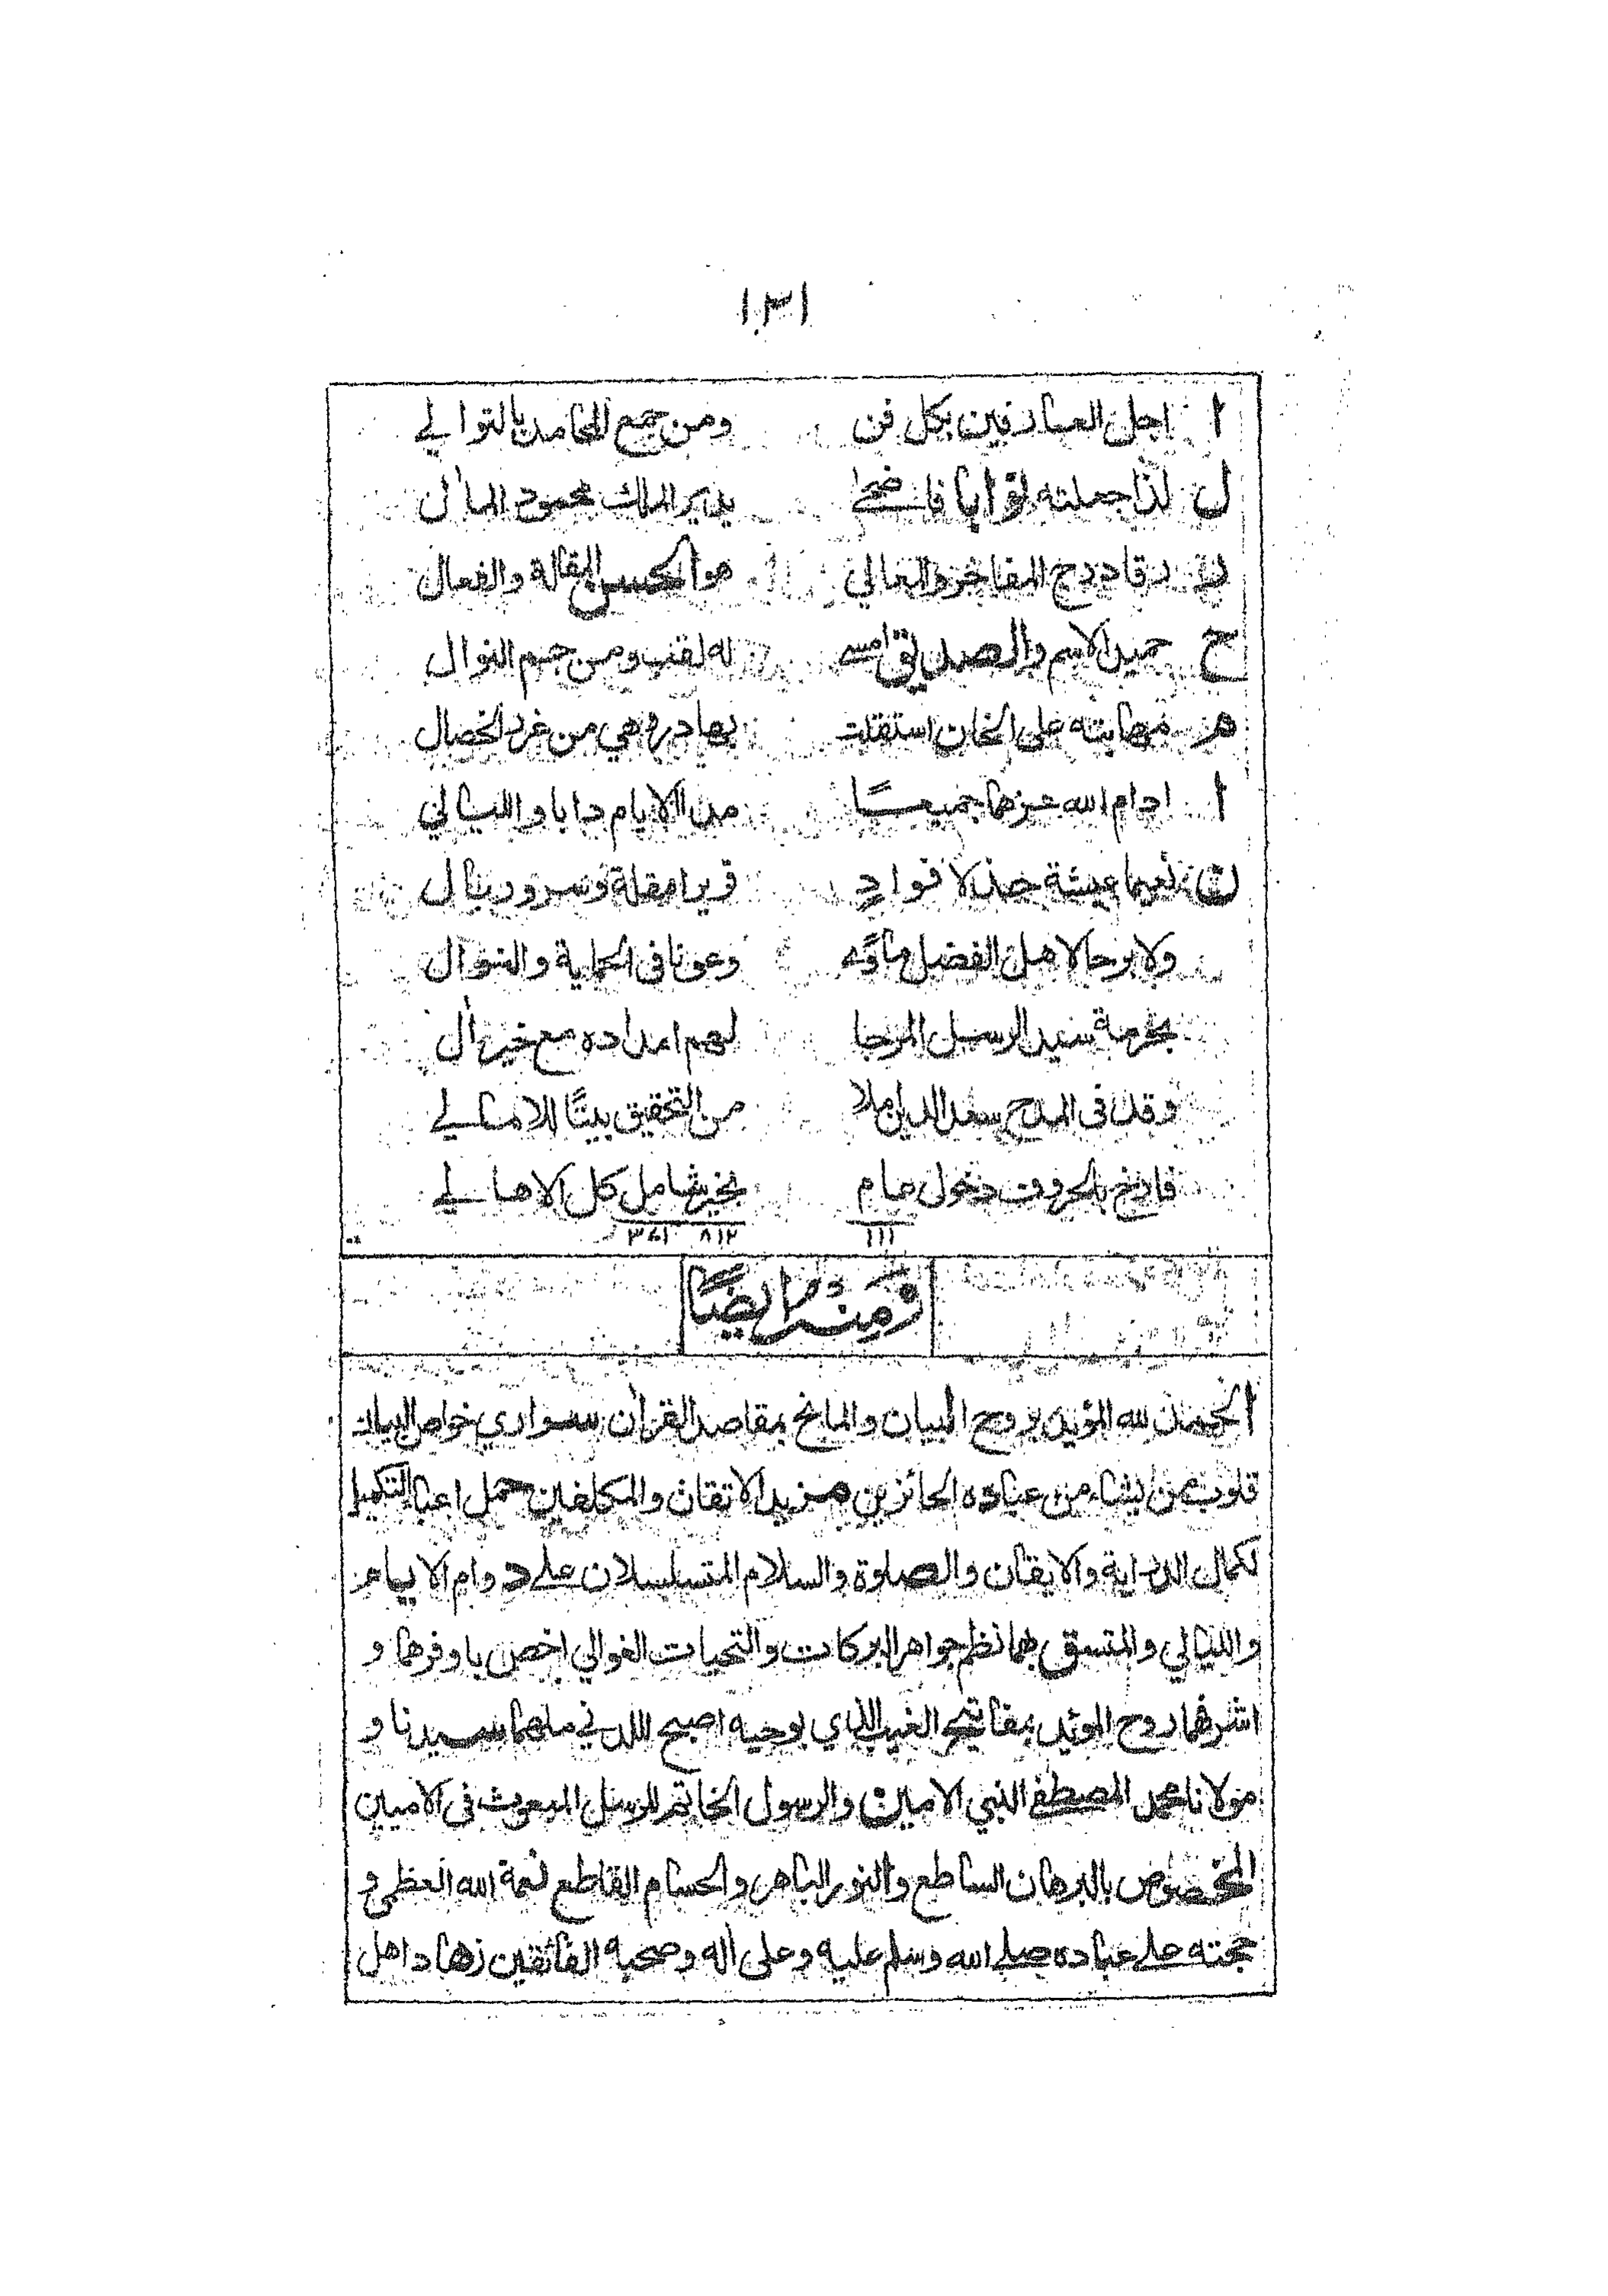 ١٣١
ا اجل العارفين بكل فن ومن جمع المحامد بالتوالے
ل لذا جعلته نوابا فاضحے يدير الملك محمود المآل
ر رقا درج المفاخر والمعالي هو الحسن المقالة والفعال
ح حميد الاسم والصديق امسے له لقب ومن جم النوال
هر مهابته على الخان استقلت بها در وهي من غرد الخصال
ا ادام الله عزهما جميعًا مدا الايام دابا والليالي
ن نعيما عيشة جذلا فوادٍ قريرا مقلة وسرور بال
ولا برحا لاهل الفضل مأوًى وعونا فى الحماية والنوال
بحرمة سيد الرسل المرجا لهم امداده مع خير اٰل
وقد فى المدح سعد الدين ملا من التحقيق بيتًا للامالے
فارخ بالحروف دخول عام بخير شامل كل الاهالے
١١١ ٨١٢ ٣٧١
ومنه ايضًا
الحمد لله المؤيد بروح البيان والمانح بمقاصد القرآن سواري خواص البيان
قلوب من يشاء من عباده الحائزين مزيد الاتقان والمكلفين حمل اعباء التكميل
لكمال الدراية والايقان والصلوة والسلام المتسلسلان علے دوام الايام
والليالي والمتسق بهما نظم جواهر البركات والتحيات الغوالي اخص باوفرهما و
اشرفهما روح الموئيد بمفاتيح الغيب الذي بوحيه اصبح اللدني ملهما سيدنا و
مولانا محمد المصطفے النبي الامين والرسول الخاتم للرسل المبعوث فى الاميين
المخصوص بالبرهان الساطع والنور الباهر والحسام القاطع نعمة الله العظمى و
حجته علے عباده صلے الله وسلم عليه وعلى اٰله وصحبه الفائقين زهاد اهل